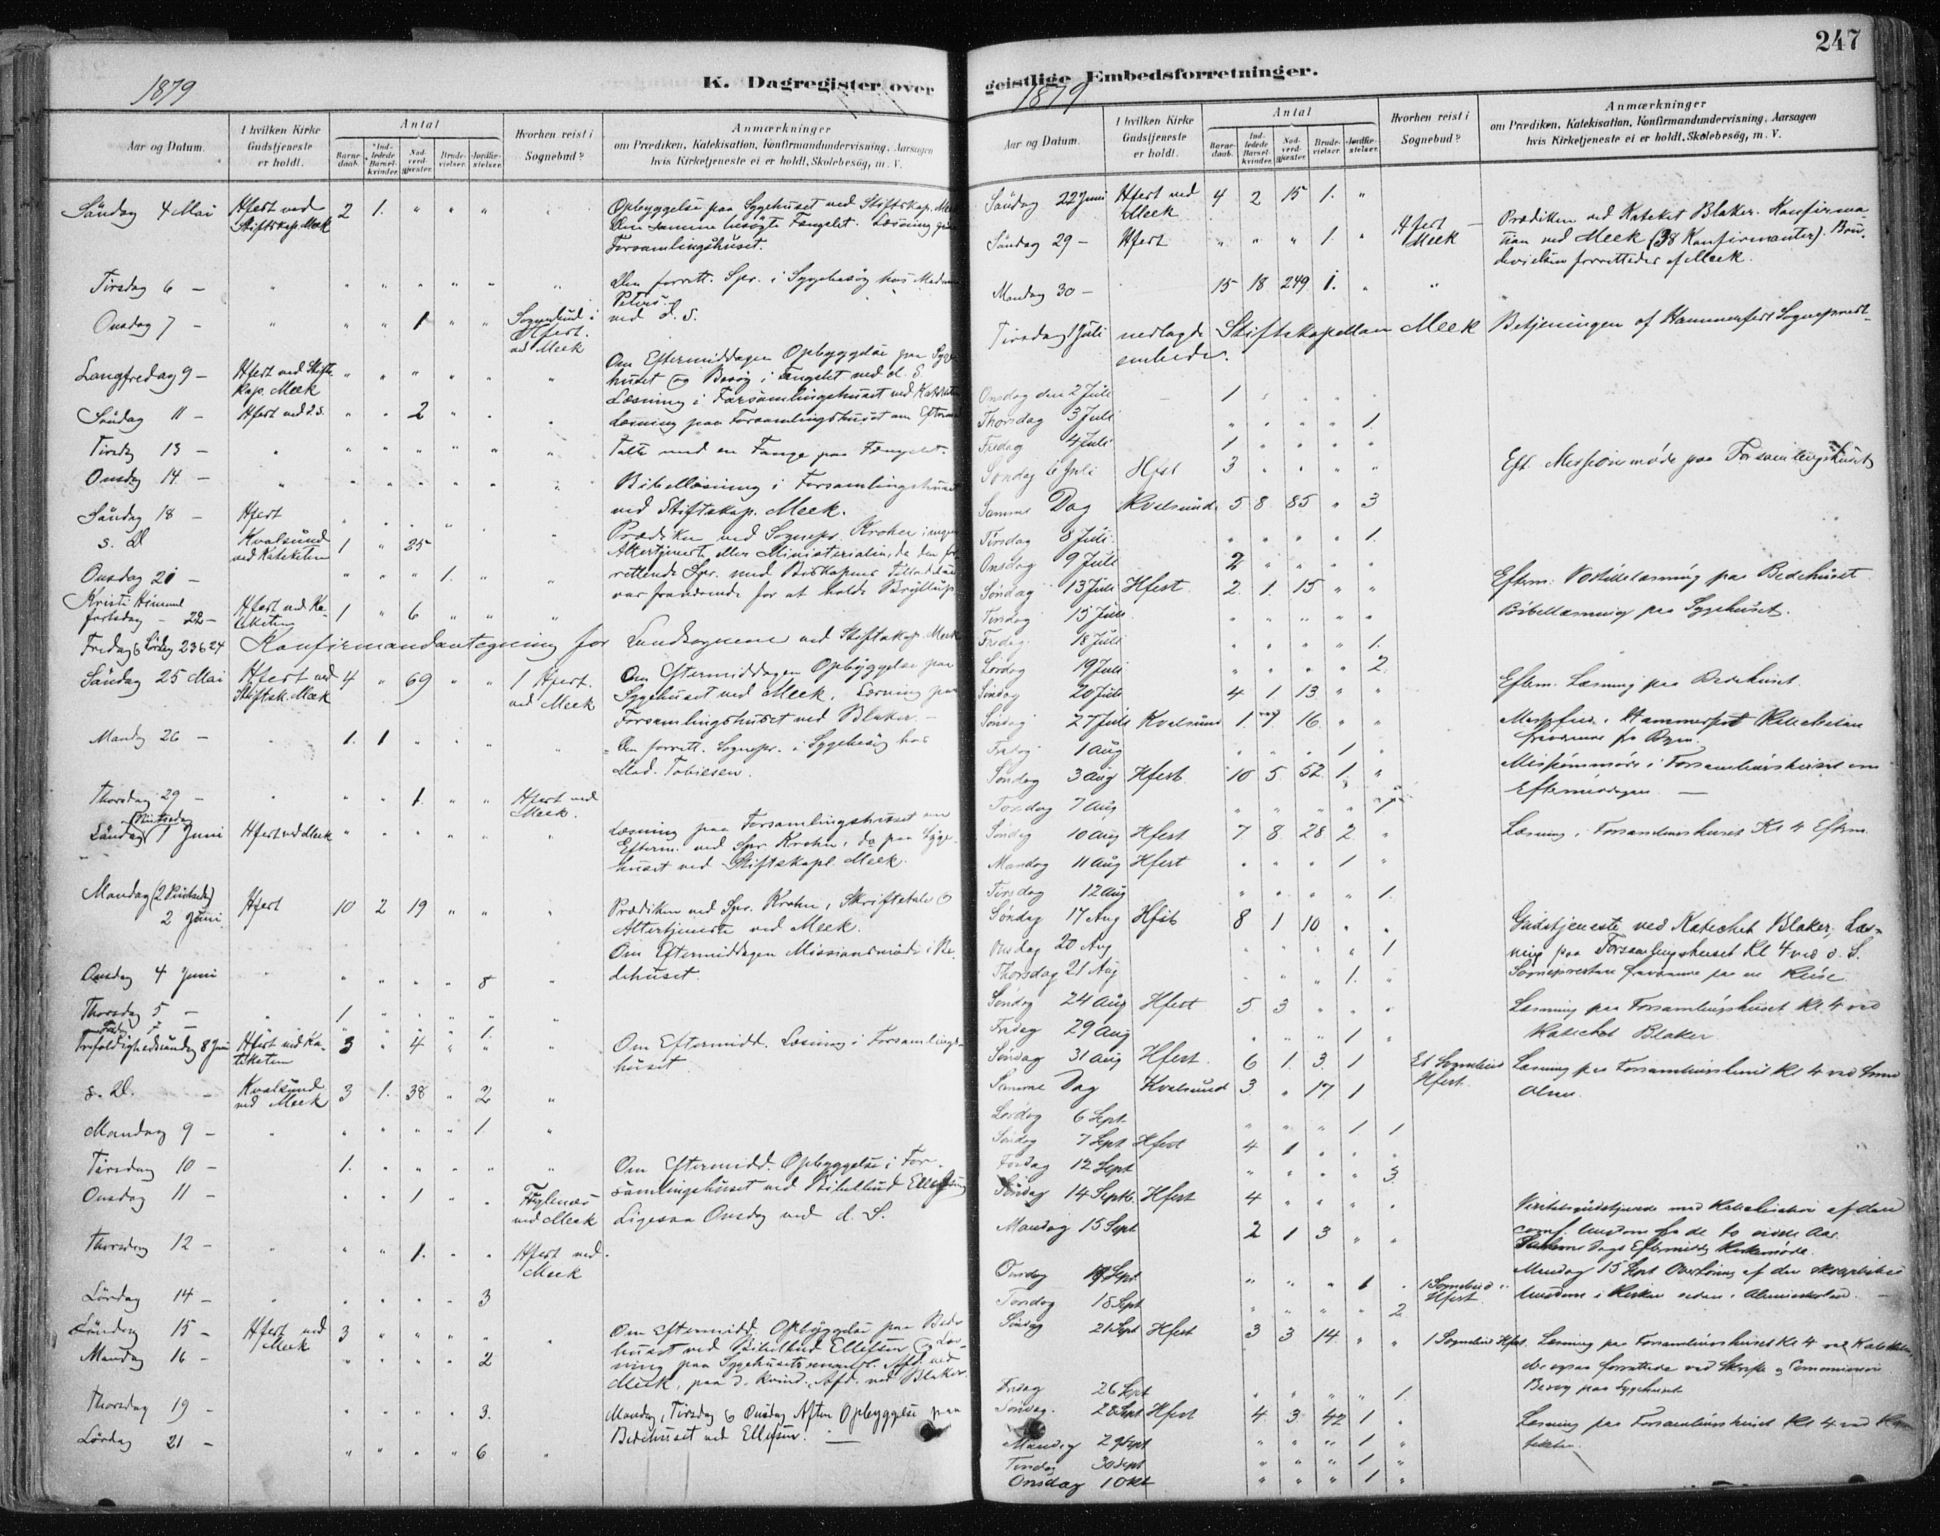 247
1879
K. Dagregister over
geistlige Embedsforretninger.
1879
Aar og Datum.
I hvilken Kirke Gudstjeneste er holdt.
Antal
Barnedaab.
Indledede Barselkvinder.
Nadverdgjester.
Brudevielser.
Jordfæstelser.
Hvorhen reist i Sognebud?
Anmærkninger
om Prædiken, Katekisation, Konfirmandundervisning, Aarsagen
hvis Kirketjeneste ei er holdt, Skolebesøg, m. V.
Söndag 4 Mai Hfest ved Stiftskap. Meek 2 1. " " " Opbyggelse paa Sygehuset ved Stiftskap. Meek
Den samme besögte Fængslet. Læsning paa
Forsamlingshuset.
Tirsdag 6 — " " " " " " Den forrett. Spr. i Sygebesög hos Madame
Peters.
Onsdag 7 — " " " 1 " " Sognebud i Hfest. ved Meek ved d. S.
Langfredag 9 — Hfest ved Stiftskap. Meek " " " " " Om Eftermiddagen Opbyggelse paa Sygehuset og Besög i Fængslet ved d. S.
Læsning i Forsamlingshuset ved
Söndag 11 — Hfest ved d. S. " " 2 " " Læsning paa Forsamlingshuset om
Tirsdag 13 — " " " " " " Talte med en Fange paa Fængslet.
Onsdag 14 — " " " " " " Bibellæsning i Forsamlingshuset
ved Stiftskap. Meek.
Söndag 18 — Hfest " " " " Prædiken ved Sognepr. Krohn, ingen
s. D. Kvalsund ved Kateketen 1 " 25 Altertjeneste eller Ministerialia, da den forrettende Spr. med Biskopens Tilladelse
Onsdag 21 — " " " 1. " " var fraværende for at holde Bryllup
Kristi Himmelfartsdag — 22 — Hfest ved Kateketen 1 " 6 " "
Fredag & Lördag 23 & 24 Konfirmandantegning for Landsognene ved Stiftskap. Meek
Söndag 25 Mai Hfest ved Stiftsk. Meek 4 " 69 " " 1 Hfest. ved Meek Om Eftermiddagen Opbyggelse paa
Sygehuset ved Meek. Læsning paa
Forsamlingshuset ved Blaker. —
Mandag 26 — " 1. 1 " " " Den forrett. Sognepr. i Sygebesög hos
Mad. Tobiesen.
Thorsdag 29 — " " 1. " " Hfest ved Meek.
Söndag 1 Juni Hfest ved Meek " " " " " Læsning paa Forsamlingshuset om
Efterm. ved Spr. Krohn, do paa Sygehuset ved Stiftskapl. Meek.
Mandag (2 Pintsedag) 2 Juni Hfest 10 2 19 " " Prædiken ved Spr. Krohn, Skriftetale &
Altertjeneste ved Meek.
Om Eftermiddagen Missionsmöde i Bedehuset.
Onsdag 4 Juni " " " " 8 "
Thorsdag 5 — " 1. " " " "
" " " " 1.
Trefoldighedssöndag 8 Juni Hfest ved Kateketen 3 " 4 " " Om Eftermidd. Læsning i Forsamlingshuset.
s. D. — Kvalsund ved Meek 3 1. 38 " 2 "
Mandag 9 — " " " " " 1 "
Tirsdag 10 — 1. " " " " Om Eftermidd. Opbyggelse i Forsamlingshuset ved Bibelbud Ellefsen
Onsdag 11 — " " 1 " " Fuglenæs ved Meek Ligesaa Onsdag ved d. S.
Thorsdag 12 — " " " 1. " " Hfest ved Meek
Lördag 14 — " " " " " 3
Söndag 15 — Hfest ved Meek 3 " " " " Om Eftermidd. Opbyggelse paa Bedehuset ved Bibelbud Ellefsen & Læsning paa Sygehusets mandl. Afd. ved
Mandag 16 — " " " " 2 Meek, paa d. kvind. Afd. ved Blaker.
Thorsdag 19 — " " " " 3. Mandag, Tirsdag & Onsdag Aften Opbyggelse paa
Bedehuset ved Ellefsen. —
Lördag 21 — " " " " 6. "
Aar og Datum.
I hvilken Kirke Gudstjeneste er holdt.
Antal
Barnedaab.
Indledede Barselkvinder.
Nadverdgjester.
Brudevielser.
Jordfæstelser.
Hvorhen reist i Sognebud?
Anmærkninger
om Prædiken, Katekisation, Konfirmandundervisning, Aarsagen
hvis Kirketjeneste ei er holdt, Skolebesøg, m. V.
Söndag 22 Juni Hfest ved Meek 4 2 15 1. "
Söndag 29 — Hfest " " " 1. " Hfest — Meek Prædiken ved Kateket Blaker. Konfirmation ved Meek (38 Konfirmanter). Brudevielsen forrettedes af Meek.
Mandag 30 — 15 18 249 1. " "
Tirsdag 1 Juli nedlagde Stiftskapellan Meek Betjeningen af Hammerfest Sogneprestembede.
Onsdag den 2 Juli — 1 " " " "
Thorsdag 3 Juli " " " " 1.
Fredag 4 Juli 1 " " " "
Søndag 6 Juli Hfest 3 " " " " Eft. Missionsmøde paa Forsamlingshuset
Samme Dag Kvalsund 5 8 85 " 3
Tirsdag 8 Juli " " " " 1.
Onsdag 9 Juli 2 " " " "
Søndag 13 Juli Hfest. 2. 1. 15 " " Efterm. Postillelæsning paa Bedehuset
Tirsdag 15 Juli " " " " " Bibellæsning paa Sygehuset.
Fredag 18 Juli " " " " 1.
Lørdag 19 Juli " " " " 2.
Søndag 20 Juli 4 1 13 " " Efterm. Læsning paa Bedehuset.
Søndag 27 Juli Kvalsund 1 7 16 " " Messefrie i Hammerfest Kateketen
fraværende fra Byen.
Fredag 1 Aug " " " 1 "
Søndag 3 Aug Hfest 10 5 52 1. " Missionsmøde i Forsamlingshuset om
Eftermiddagen. —
Torsdag 7 Aug
Søndag 10 Aug Hfest 7 8 28 2 " Læsning i Forsamlingshuset Kl 4 Efterm
Mandag 11 Aug Hfest " " " 1 "
Tirsdag 12 Aug " " " " 1.
Søndag 17 Aug Hfest 8 1 10 " " Gudstjeneste ved Katechet Blaker, Læsning paa Forsamlingshuset Kl 4 ved d. S.
Onsdag 20 Aug " " " " 1
Thorsdag 21 Aug " " " 1. " Sognepresten fraværende paa en Reise
Søndag 24 Aug Hfest 5 3 " " " Læsning paa Forsamlingshuset Kl. 4 ved
Katechet Blaker
Fredag 29 Aug " " " 1 "
Søndag 31 Aug Hfest. 6 1. 3. 1 Et Sognebud Hfest. Læsning paa Forsamlingshuset Kl 4 ved
Olsen.
Samme Dag Kvalsund 3. " 17 1
Lørdag 6 Sept. " " " 1 1
Søndag 7 Sept Hfest 4 1 " " "
Fredag 12 Sept " " " " 3.
Søndag 14 Septb. Hfest 4 " " " " Visitatsgudstjeneste med Katekisation af den
conf. Ungdom fra de to sidste Aar.
Samme Dags Eftermiddag Kirkemøde.
Mandag 15 Sept 2 1 3 " " Mandag 15 Sept Overhøring af den
Ungdom i Kirken siden i Almueskolen. —
Onsdag 17 Sept " " " 1 " 1 Sognebud Hfest.
Torsdag 18 Sept " " " " 2
Søndag 21 Sept Hfest 3 3 14. " " 1 Sognebud Hfest. Læsning paa Forsamlingshuset Kl 4 ved Kateketen,
der ogsaa forrettede ved Skrifte og Communion
Besøg paa Sygehuset
Fredag 26 Sept " " " " 1.
Søndag. 28 Sept Hfest 4 3 42 1 " Læsning paa Forsamlingshuset Kl 4 ved
Mandag 29 Sept " " " 1 "
Tirsdag 30 Sept " " " 1 "
Onsdag 1 Okt " " " 1 "